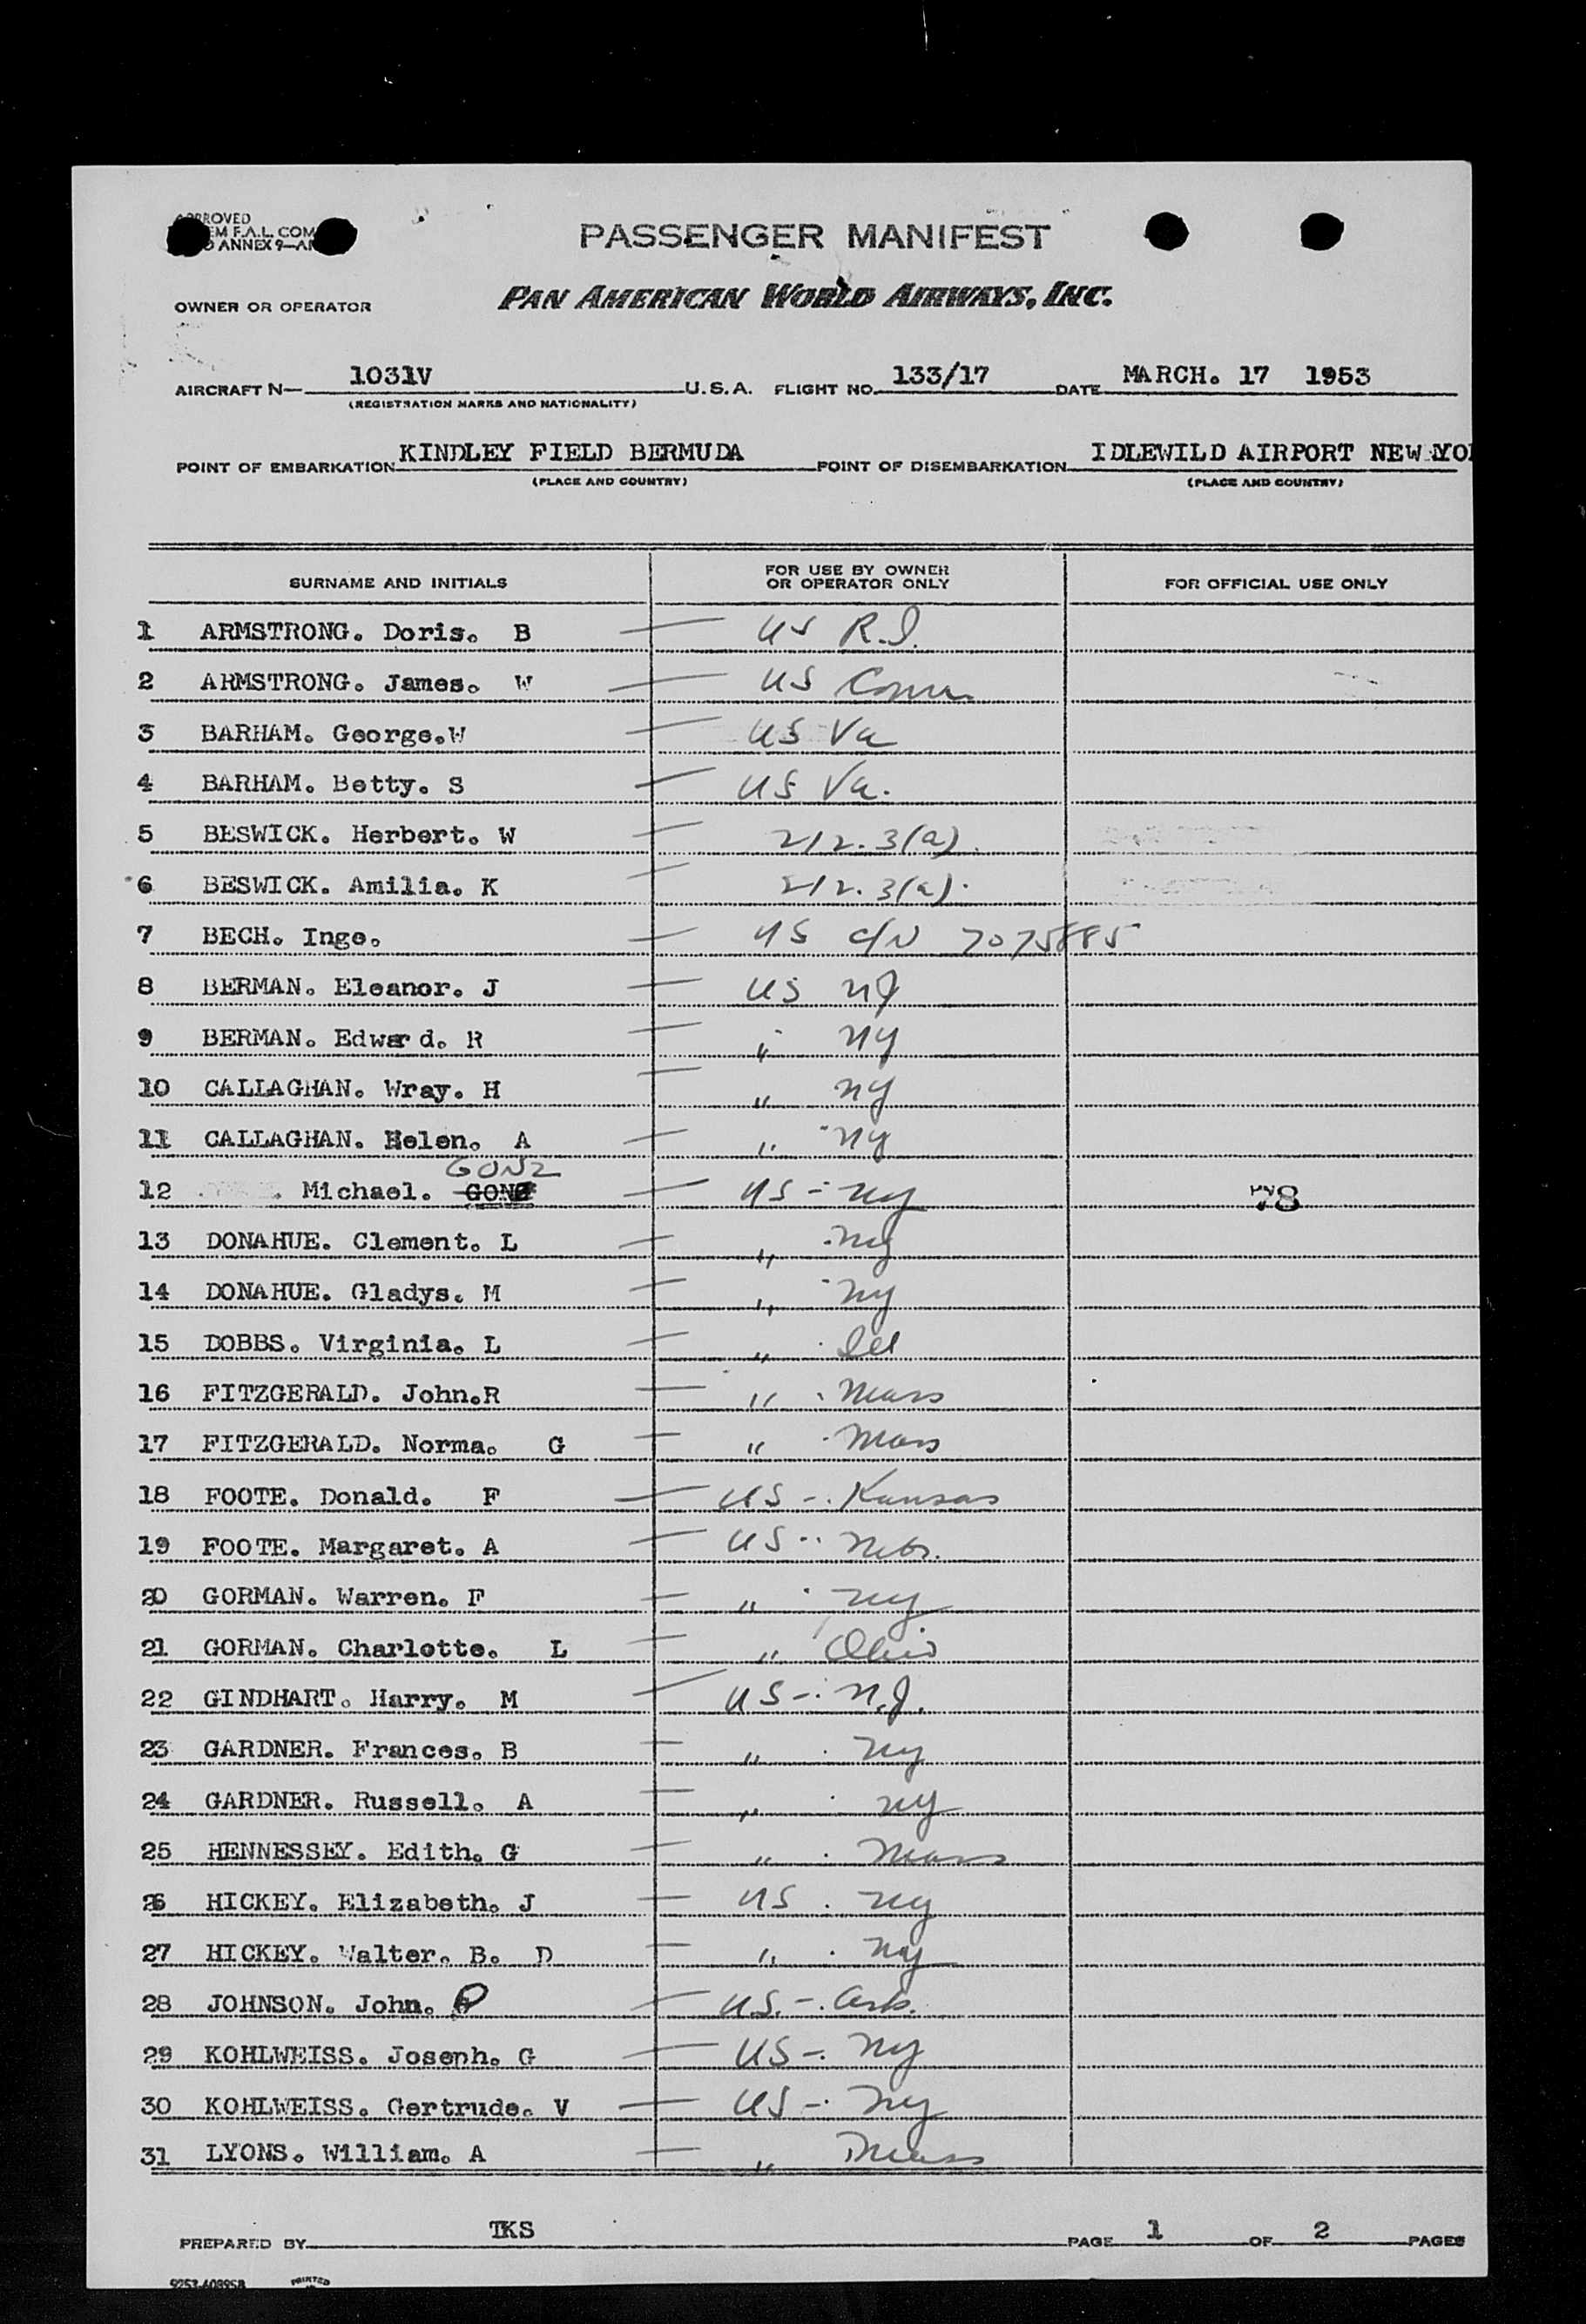 APPROVED
EM F.A.L. COM
ANNEX 9—A
PASSENGER MANIFEST
OWNER OR OPERATOR PAN AMERICAN WORLD AIRWAYS, INC.
AIRCRAFT N— 1031V U.S.A. FLIGHT NO. 133/17 DATE MARCH. 17 1953
(REGISTRATION MARKS AND NATIONALITY)
POINT OF EMBARKATION KINDLEY FIELD BERMUDA POINT OF DISEMBARKATION IDLEWILD AIRPORT NEW YO
(PLACE AND COUNTRY) (PLACE AND COUNTRY)
SURNAME AND INITIALS FOR USE BY OWNER OR OPERATOR ONLY FOR OFFICIAL USE ONLY
1 ARMSTRONG. Doris. B — US R.I.
2 ARMSTRONG. James. W — US Conn
3 BARHAM. George.W — US Va
4 BARHAM. Betty. S — US Va.
5 BESWICK. Herbert. W — 212.3(a)
6 BESWICK. Amilia. K — 212.3(a).
7 BECH. Inge. — US C/N 7075885
8 BERMAN. Eleanor. J — US NJ
9 BERMAN. Edward. R — " NY
10 CALLAGHAN. Wray. H — " NY
11 CALLAGHAN. Helen. A — " NY
GONZ
12 . Michael. GONZ — US - NY 78
13 DONAHUE. Clement. L — " NY
14 DONAHUE. Gladys. M — " NY
15 DOBBS. Virginia. L — " Ill
16 FITZGERALD. John.R — " Mass
17 FITZGERALD. Norma. G — " Mass
18 FOOTE. Donald. F — US - Kansas
19 FOOTE. Margaret. A — US - Nebr.
20 GORMAN. Warren. F — " NY
21 GORMAN. Charlotte. L — " Ohio
22 GINDHART. Harry. M — US - N.J.
23 GARDNER. Frances. B — " NY
24 GARDNER. Russell. A — " NY
25 HENNESSEY. Edith. G — " Mass
26 HICKEY. Elizabeth. J — US NY
27 HICKEY. Walter. B. D — " NY
28 JOHNSON. John. P — US. - Ark.
29 KOHLWEISS. Joseph. G — US - NY
30 KOHLWEISS. Gertrude. V — US - NY
31 LYONS. William. A — " Mass
PREPARED BY TKS PAGE 1 OF 2 PAGES
PRINTED